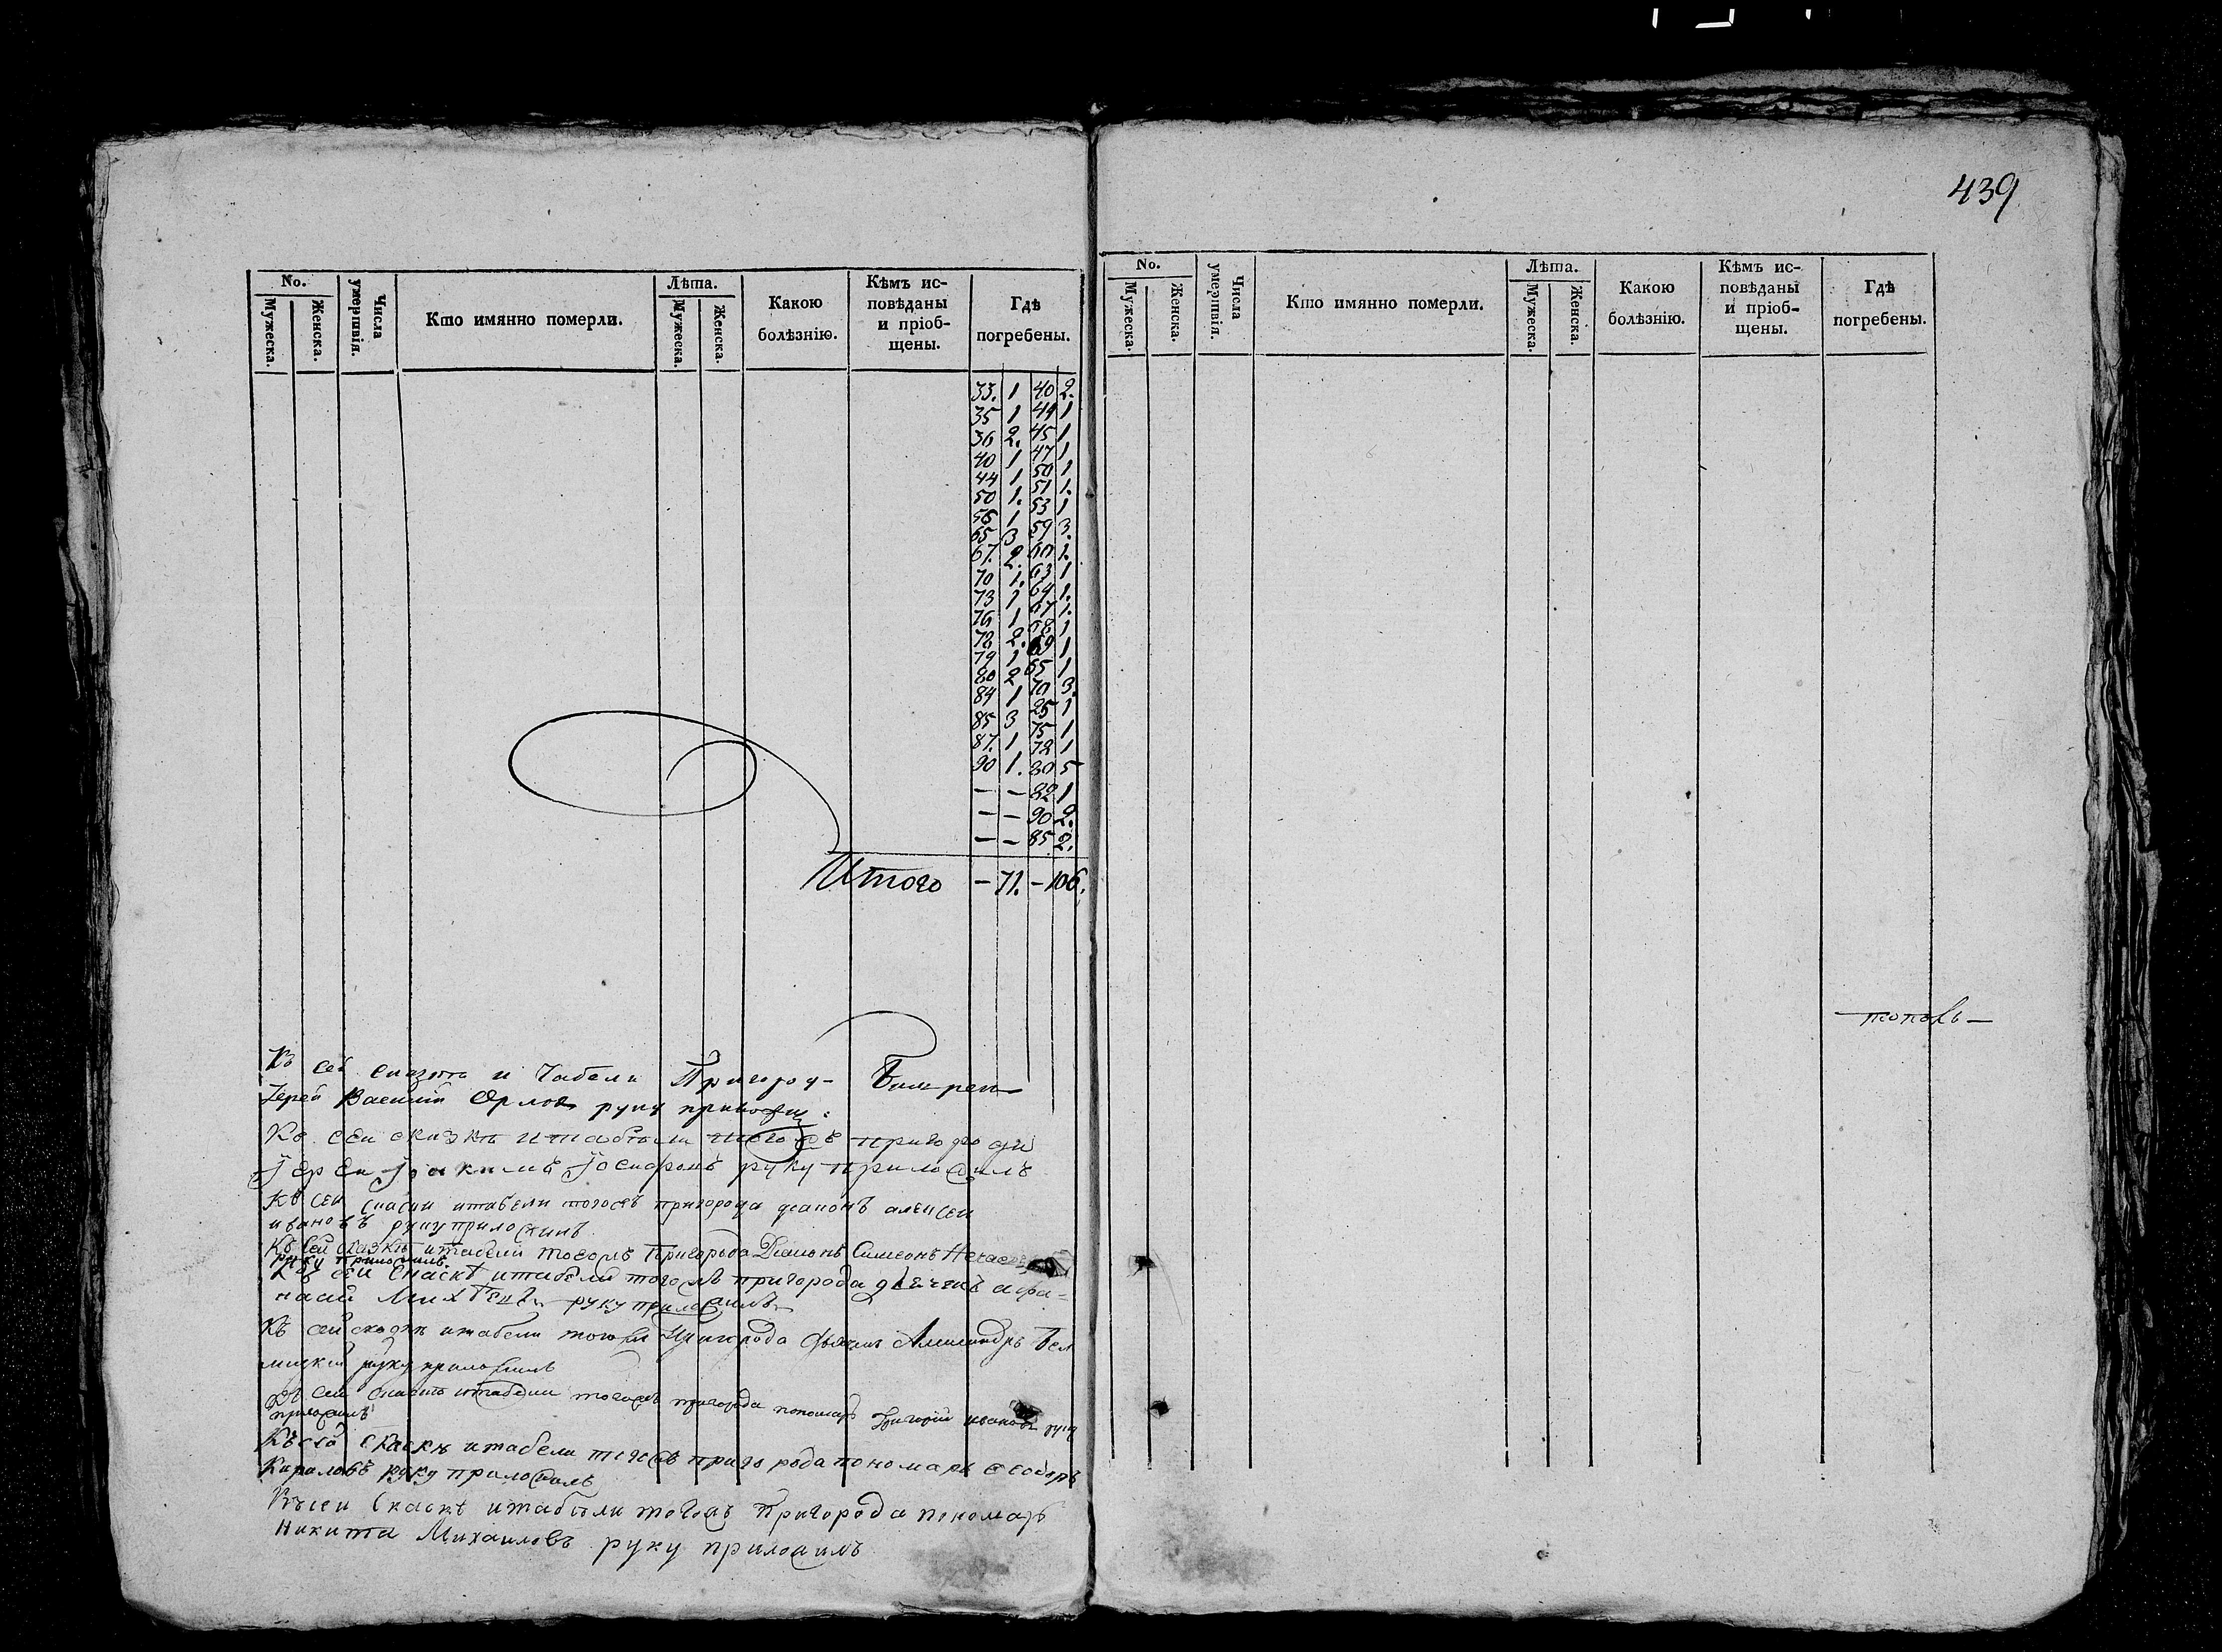 439
No.
Мужеска. Женска.
Числа умертвія.
Кто имянно померли.
Лѣта.
Мужеска. Женска.
Какою болѣзнію.
Кѣмъ ис-
повѣданы
и пріоб-
щены.
Гдѣ
погребены.
33. 1 40 2.
35 1 44 1
36 2. 45 1
40 1 47 1
44 1 50 1
50 1. 51 1.
56 1 53 1
65 3 59 3.
67. 2. 60 1.
70 1. 63 1
73 1 64 1.
76 1 67 1.
78 2. 68 1
79 1 69 1
80 2 65 1
84 1 70 3.
85 3 25 1
87. 1 75 1
90 1. 78 1
80 5
— — 82 1
— — 90 2.
— — 85 2.
Итого — 71. — 106.
Къ сей и табели Пригород-
Іерей Василій Орловъ руку приложилъ
Къ сеи скизкѣ и табели тогожъ пригорода
Іереи Іоакимъ руку приложилъ
Къ сеи скаски итабели тогожъ пригорода диаконъ алексеи
ивановъ руку приложилъ
Къ сей сказкѣ итабели тогожъ Пригорода Диаконъ Симеонъ
руку приложилъ
Къ сеи скаскѣ итабели тогожъ пригорода дьячекъ афа-
насий руку приложилъ
Къ сей итабели тогожъ пригорода дьячекъ Александръ Бел
руку приложилъ
Къ сеи итабели тогожъ пригорода пономарь Григорий ивановъ руку
приложилъ
Къ сей скаски итабели тогожъ пригорода пономарь Ѳеодоръ
Кириловъ руку приложилъ
Къ сеи скаскѣ итабели тогожъ Пригорода пономарь
Никита Михаиловъ руку приложилъ
No.
Мужеска. Женска.
Числа умертвія.
Кто имянно померли.
Лѣта.
Мужеска. Женска.
Какою болѣзнію.
Кѣмъ ис-
повѣданы
и пріоб-
щены.
Гдѣ
погребены.